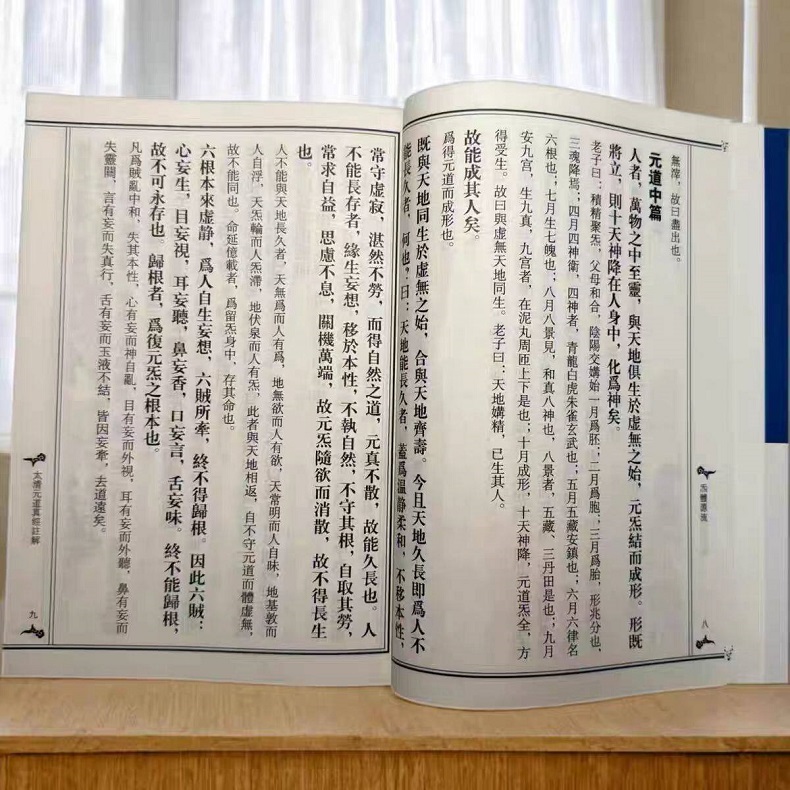 無滓，故曰盡出也。
元道中篇
人者，萬物之中至靈，與天地俱生於虛無之始，元炁結而成形。形既
將立，則十天神降在人身中，化爲神矣。
老子曰：積精聚炁，父母和合，陰陽交媾始一月爲胚；二月爲胞；三月爲胎，形兆分也，
三魂降焉；四月四神衛，四神者，青龍白虎朱雀玄武也；五月五藏安鎮也；六月六律名
六根也；七月生七魄也；八月八景見，和真八神也，八景者，五藏、三丹田是也；九月
安九宮，生九真，九宮者，在泥丸周匝上下是也；十月成形，十天神降，元道炁全，方
得受生。故曰與虛無天地同生。老子曰：天地媾精，已生其人。
故能成其人矣。
爲得元道而成形也。
既與天地同生於虛無之始，合與天地齊壽。今且天地久長即爲人不
能長久者，何也？曰：天地能長久者，蓋爲溫静柔和，不移本性，
常守虛寂，湛然不勞，而得自然之道，元真不散，故能久長也。人
不能長存者，緣生妄想，移於本性，不執自然，不守其根，自取其勞，
常求自益，思慮不息，關機萬端，故元炁隨欲而消散，故不得長生
也。
人不能與天地長久者，天無爲而人有爲，地無欲而人有欲，天常明而人自昧，地基敦而
人自浮，天炁輪而人炁滯，地伏泉而人有炁，此者與天地相返，自不守元道而體虛無，
故不能同也。命延億載者，爲留炁身中，存其命也。
六根本來虛静，爲人自生妄想，六賊所牽，終不得歸根。因此六賊：
心妄生，目妄視，耳妄聽，鼻妄香，口妄言，舌妄味。終不能歸根，
故不可永存也。歸根者，爲復元炁之根本也。
凡爲賊亂中和，失其本性，心有妄而神自亂，目有妄而外視，耳有妄而外聽，鼻有妄而
失靈關，言有妄而失真行，舌有妄而玉液不結，皆因妄牽，去道遠矣。
炁體源流
八
太清元道真經註解
九